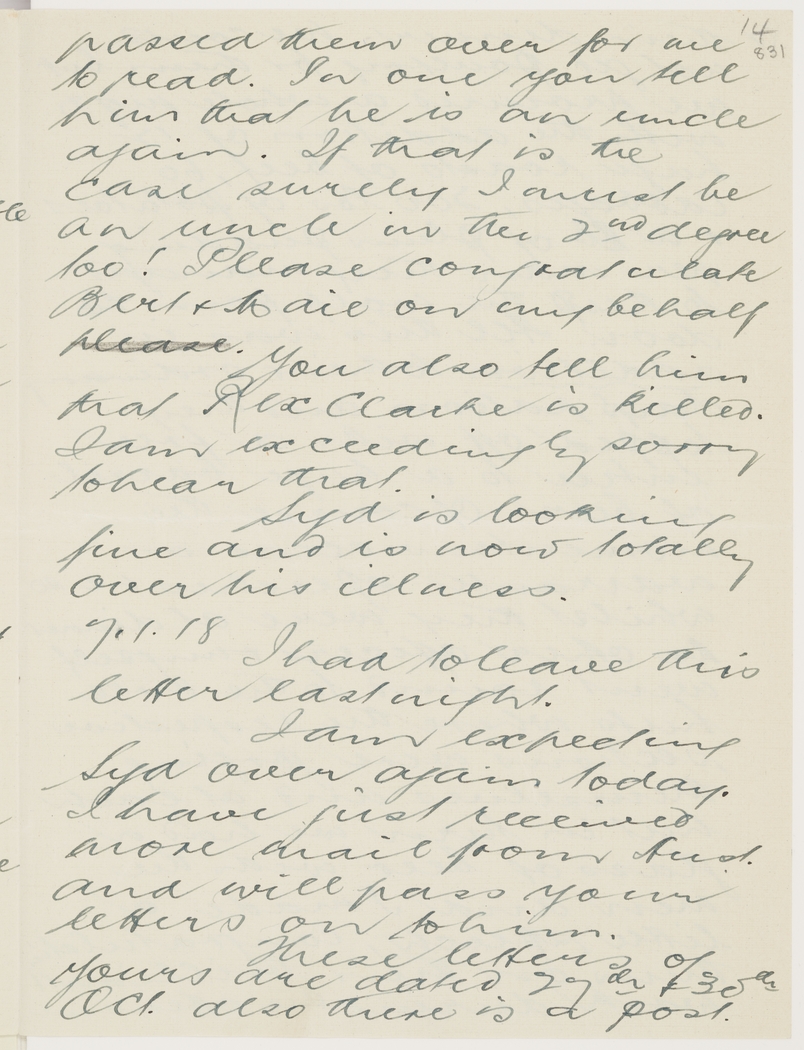 14
831
passed them over for me
to read. In one you tell
him that he is an uncle
again. If that is the
case surely I must be
an uncle in the 2nd degree
too! Please congratulate
Bert & Maie on my behalf
please.
You also tell him
that Rex Clarke is killed.
I am exceedingly sorry
to hear that.
Syd is looking
fine and is now totally
over his illness.
7.1.18
I had to leave this
letter last night.
I am expecting
Syd over again today.
I have just received
more mail from Aust.
and will pass your
letters on to him.
These letters of
yours are dated 27th & 30th
Oct. also there is a post.